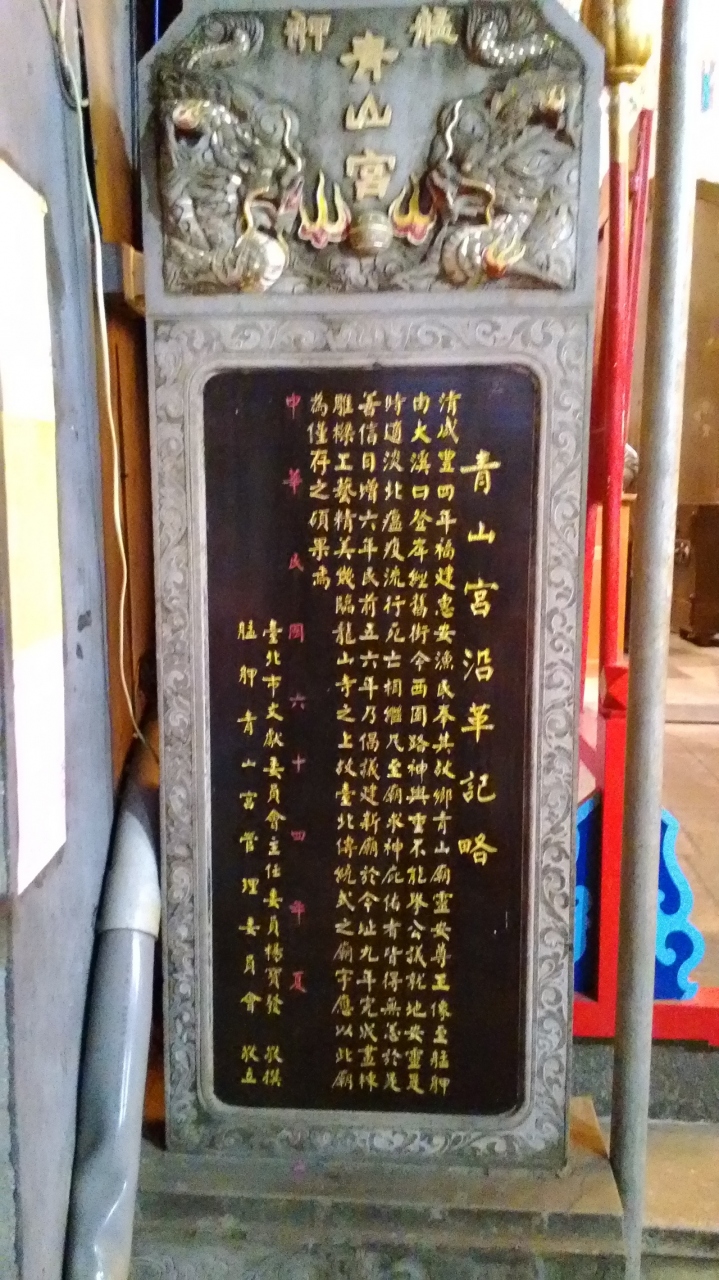 艋舺
青山宮
青山宮沿革記略
清咸豐四年福建惠安漁民奉其故鄉青山廟靈安尊王像至艋舺
由大溪口登岸經舊街今西園路神輿重不能舉公議就地安靈是
時適淡北瘟疫流行死亡相繼凡至廟求神庇佑者皆得無恙於是
善信日增六年民前五六年乃倡議建新廟於今址九年完成畫棟
雕樑工藝精美幾臨龍山寺之上故臺北傳統式之廟宇應以此廟
為僅存之碩果焉
中華民國六十四年夏
臺北市文獻委員會主任委員楊寶發 敬撰
艋舺青山宮管理委員會 敬立